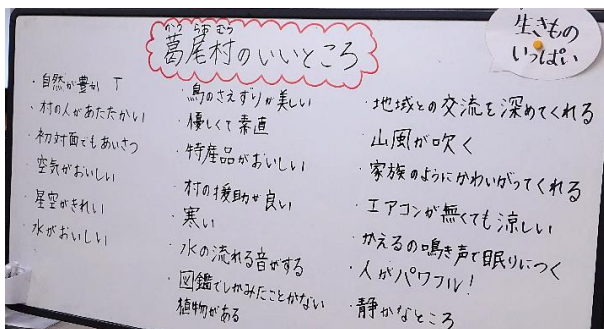 かつらおむら
葛尾村のいいところ
生きもの
いっぱい
・自然が豊か T
・村の人があたたかい
・初対面でもあいさつ
・空気がおいしい
・星空がきれい
・水がおいしい
・鳥のさえずりが美しい
・優しくて素直
・特産品がおいしい
・村の援助が良い
・寒い
・水の流れる音がする
・図鑑でしかみたことがない
植物がある
・地域との交流を深めてくれる
・山風が吹く
・家族のようにかわいがってくれる
・エアコンが無くても涼しい
・かえるの鳴き声で眠りにつく
・人がパワフル!
・静かなところ